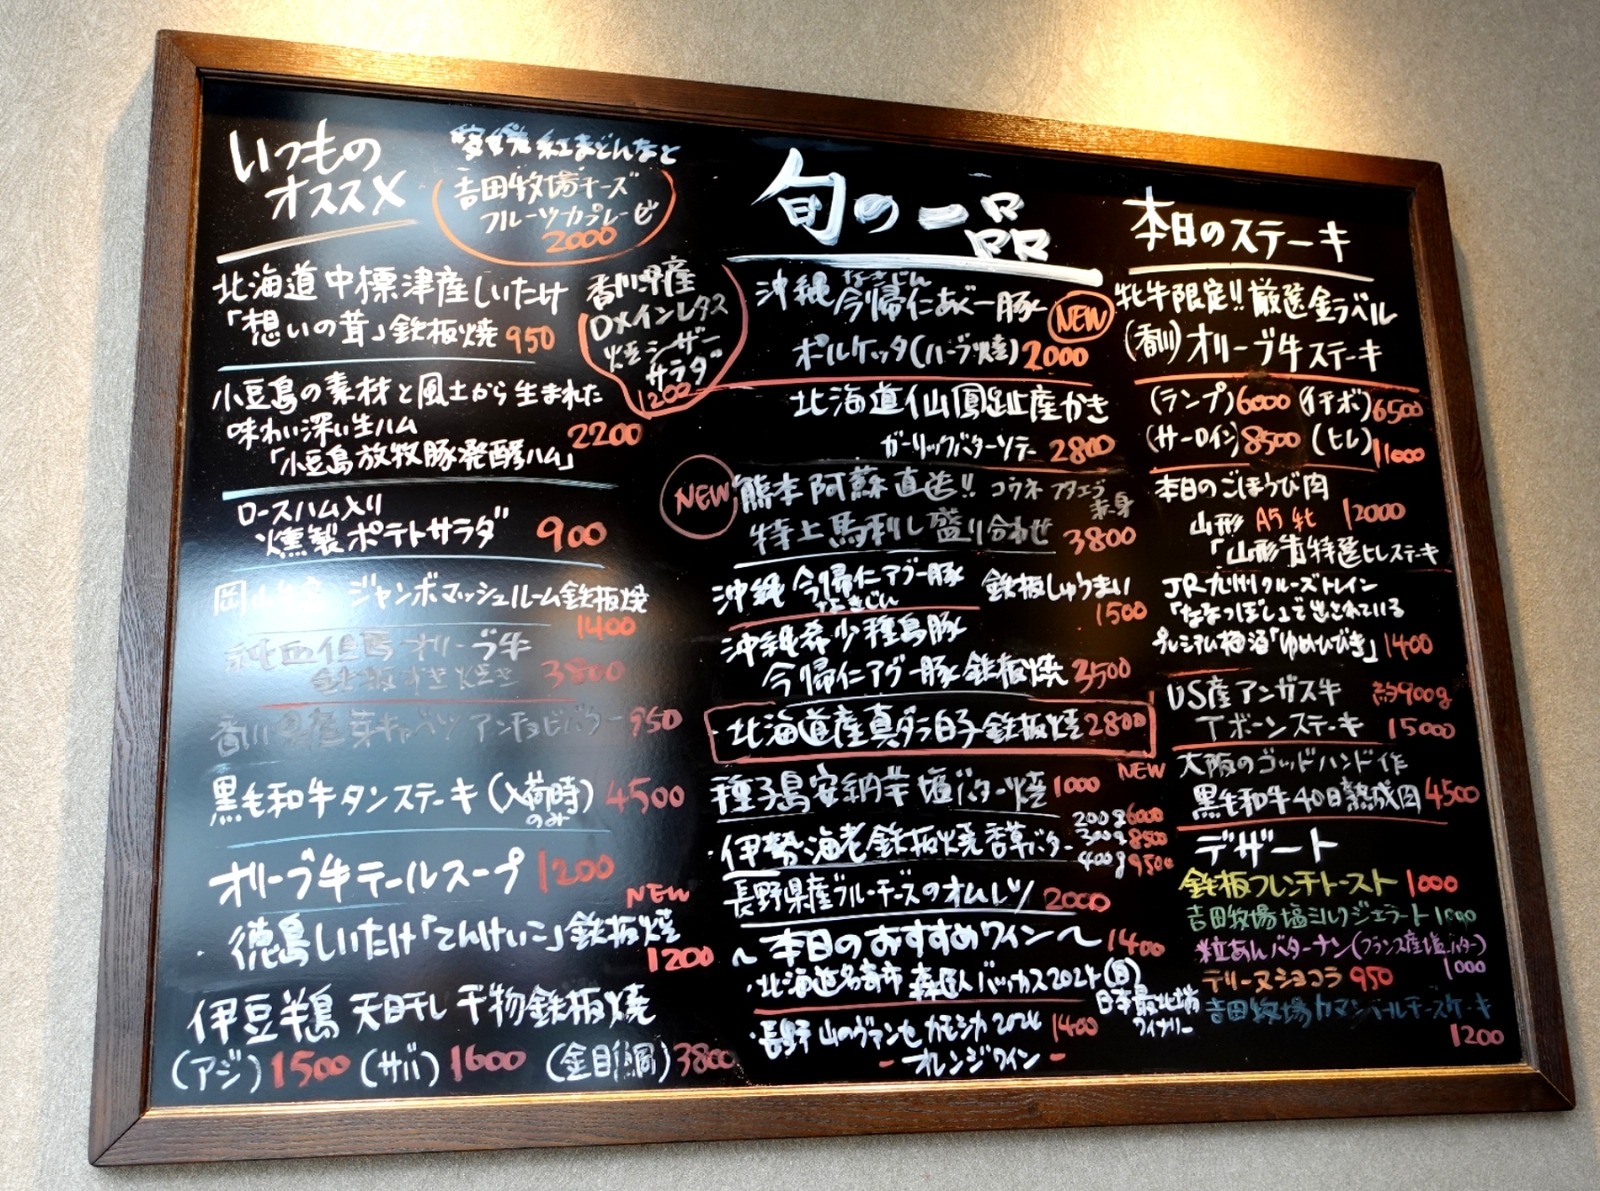 いつもの
オススメ
紅まどんなと
吉田牧場チーズ
フルーツカプレーゼ
2000
北海道中標津産しいたけ
「想いの茸」鉄板焼 950
香川県産
ロメインレタス
焼シーザー
サラダ
1200
小豆島の素材と風土から生まれた
味わい深い生ハム 2200
「小豆島放牧豚発酵ハム」
ロースハム入り
燻製ポテトサラダ 900
岡山 ジャンボマッシュルーム鉄板焼
1400
純血但馬オリーブ牛
鉄板すき焼き 3800
香川県産芽キャベツ アンチョビバター 950
黒毛和牛タンステーキ(入荷時のみ) 4500
オリーブ牛テールスープ 1200
NEW
・徳島しいたけ「てんけいこ」鉄板焼
1200
伊豆半島 天日干し 干物鉄板焼
(アジ)1500 (サバ)1600 (金目鯛)3800
旬の一品
沖縄今帰仁あぐー豚 NEW
なきじん
ポルケッタ(ハーブ焼)2000
北海道仙鳳趾産かき
ガーリックバターソテー 2800
NEW 熊本阿蘇直送!! コウネ フタエゴ 赤身
特上馬刺し盛り合わせ 3800
沖縄今帰仁アグー豚 鉄板しゅうまい
なきじん 1500
沖縄希少種島豚
今帰仁アグー豚鉄板焼 3500
・北海道産真ダラ白子鉄板焼 2800
NEW
種子島安納芋塩バター焼 1000
・伊勢海老鉄板焼香草バター 200g 6000
300g 8500
400g 9500
長野県産ブルーチーズのオムレツ 2000
〜本日のおすすめワイン〜 1400
・北海道名寄市 森臥 バッカス2024(白)
日本最北端
ワイナリー
・長野 山のヴァンセ カモシカ 2024 1400
- オレンジワイン -
本日のステーキ
牝牛限定!! 厳選金ラベル
(香川)オリーブ牛ステーキ
(ランプ)6000 (イチボ)6500
(サーロイン)8500 (ヒレ)11000
本日のごほうび肉
山形 A5 牝 12000
「山形牛特選ヒレステーキ
JR九州クルーズトレイン
「ななつぼし」で出されている
プレミアム梅酒「ゆめひびき」1400
US産アンガス牛 約900g
Tボーンステーキ 15000
大阪のゴッドハンド作
黒毛和牛40日熟成肉 4500
デザート
鉄板フレンチトースト 1000
吉田牧場塩ミルクジェラート 1000
粒あんバターナン(フランス産塩バター)
1000
テリーヌショコラ 950
吉田牧場カマンベールチーズケーキ
1200